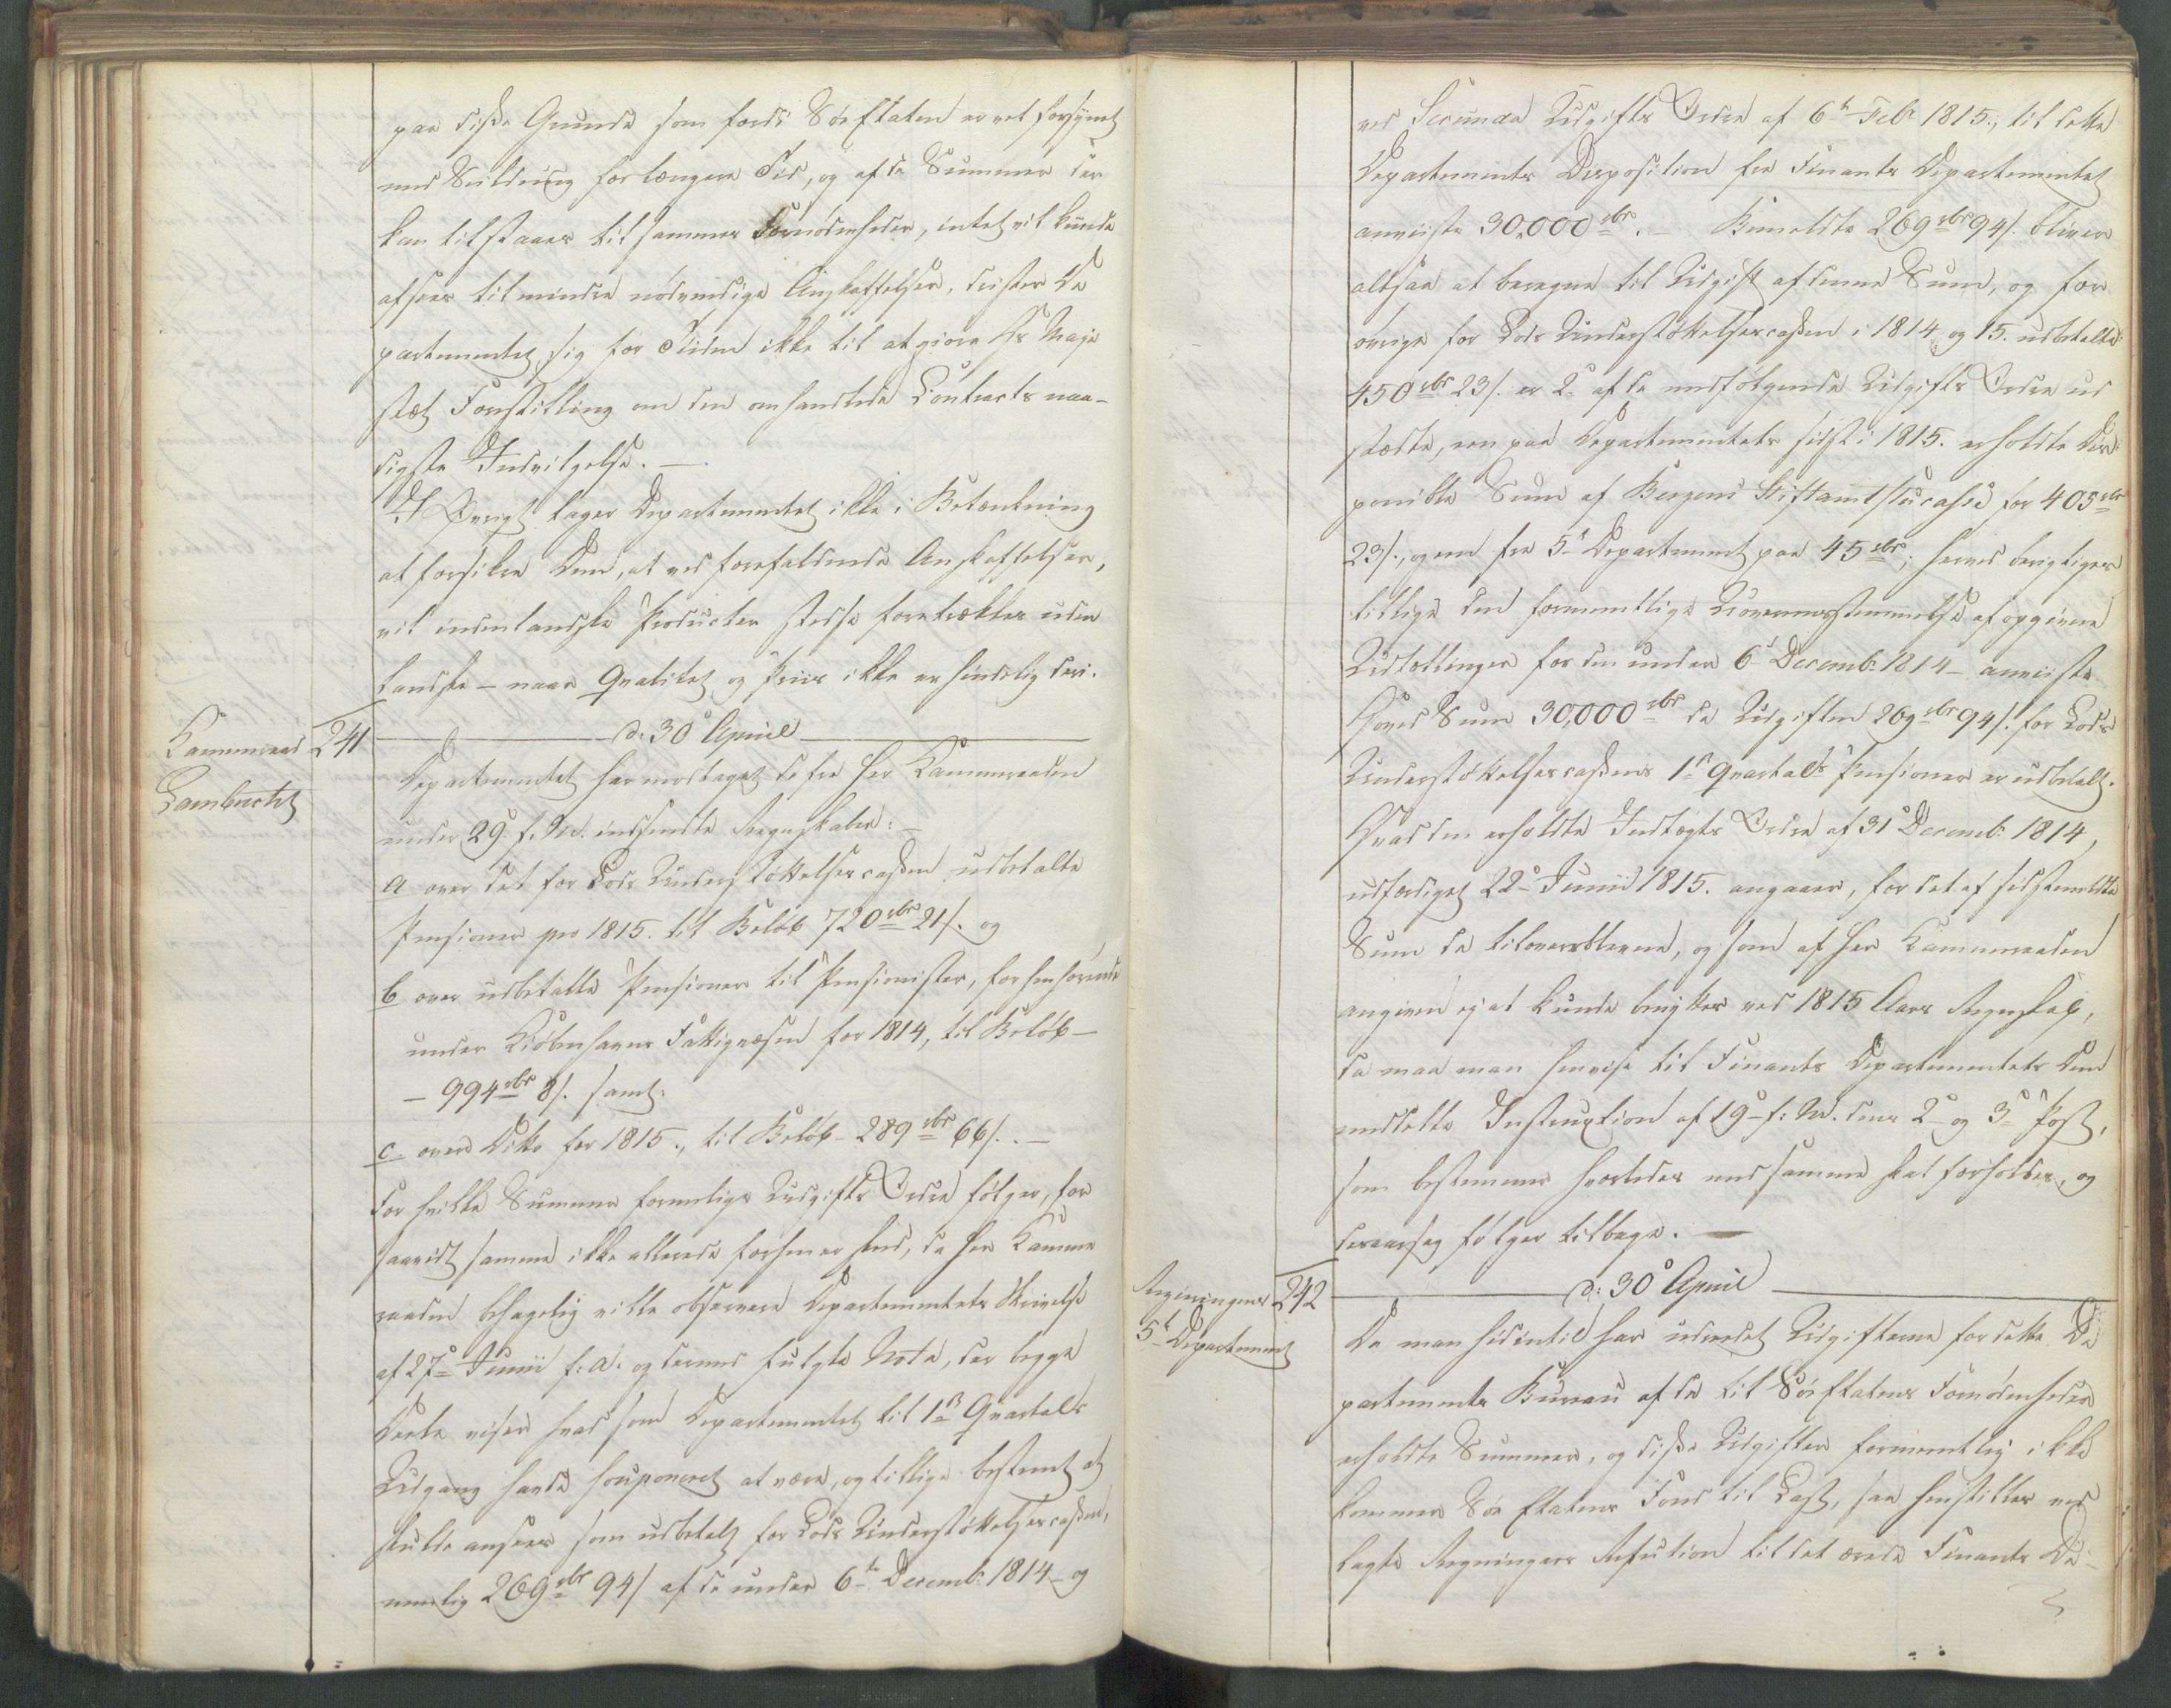 paa disse Grunde som fordi Søe Etaten er vel forsynet
med Seildug for længere Tid, og af de Summer der
kan tilstaaes til sammes Fornødenheder, intet vil kunde
afsees til mindre nødvendige Anskaffelser, drister De
partementet sig for Tiden ikke til at giøre Hs Maje
stæt Forestilling om den omhandlede Contracts naa-
digste Indvilgelse. —
I Øvrigt tager Departementet ikke i Betænkning
at forsikre Dem, at ved forefaldende Anskaffelser,
vil indenlandske Producter stedse foretrækkes uden
landske — naar Qvalitet og Priis ikke er hinderlig deri.
Kammerraad 241 d: 30' April
Lambrecht
Departementet har modtaget de fra Her Kammerraaden
under 29' f. M. indsendte Regnskaber: —
a over det for Lods Understøttelsescassen udbetalte
Pensioner pro 1815. til Beløb 720 rbr 21 s. og
b over udbetalte Pensioner til Pensionister, forhen hørende
under Kiøbenhavns Fattigvæsen for 1814, til Beløb —
— 994 rbr 8 s. samt:
c. over Dito for 1815., til Beløb - 289 rbr 66 s.. —
For hvilke Summer formelige Udgifts Ordre følger, for
saavidt samme ikke allerede forhen er skeed, da Her Kamme
raaden behagelig ville observere Departementets Skrivelse
af 27' Junii f: A. og dermed fulgte Nota, der begge
Deele viser hvad som Departementet til 1ste Qvartals
Udgang havde supponeret at være, og tillige bestemt at
skulde ansees som udbetalt for Lods Understøttelsescassen,
nemlig 269 rbr 94 s af de under 6te Decemb: 1814 og
ved Secunda Udgifts Ordre af 6te Febr 1815., til dette
Departements Disposition fra Finants Departementet
anviiste 30,000 rbr. — Bemeldte 269 rbr 94 s. bliver
altsaa at beregne til Udgift af denne Sum, og for
øvrige for Lods Understøttelsescassen i 1814 og 15. udbetalte
450 rbr 23 s. er 2 af de medfølgende Udgifts Ordre ud
stædte, een paa Departementets sidst i 1815. erholdte Dis
ponible Sum af Bergens Stiftamtstuecasse for 405 rbr
23 s., og een fra 5te Departement paa 45 rbr; herved berigtiges
tillige den formentlige Uovereensstemmelse af opgivne
Udtællinger for den under 6te Decemb: 1814 — anviiste
Hoved Sum 30,000 rbr da Udgiften 269 rbr 94 s. for Lods
Understøttelsescassens 1ste Qvartals Pensioner er udbetalt.
Hvad den erholdte Indtægts Ordre af 31' Decemb: 1814,
udfærdiget 22' Junii 1815. angaaer, for det af sidstmeldte
Sum da tiloversblevne, og som af Her Kammerraaden
angiven ej at kunde benyttes ved 1815 Aars Regnskab,
da maa man henvise til Finants Departementets Dem
meddelte Instruction af 19' f: M. dens 2' og 3' Post,
som bestemmer hvorledes med samme skal forholdes, og
deraarsag følger tilbage. —
Regieringens 242 d: 30' April
5te Departement
Da man hidintil har udredet Udgifterne for dette De
partements Bureau af de til Søe Etatens Fornødenheder
erholdte Summer, og disse Udgifter formeentlig ikke
kommer Søe Etatens Fond til Last, saa henstilles ved
lagte Regningers Refusion til det ærede Finants De-